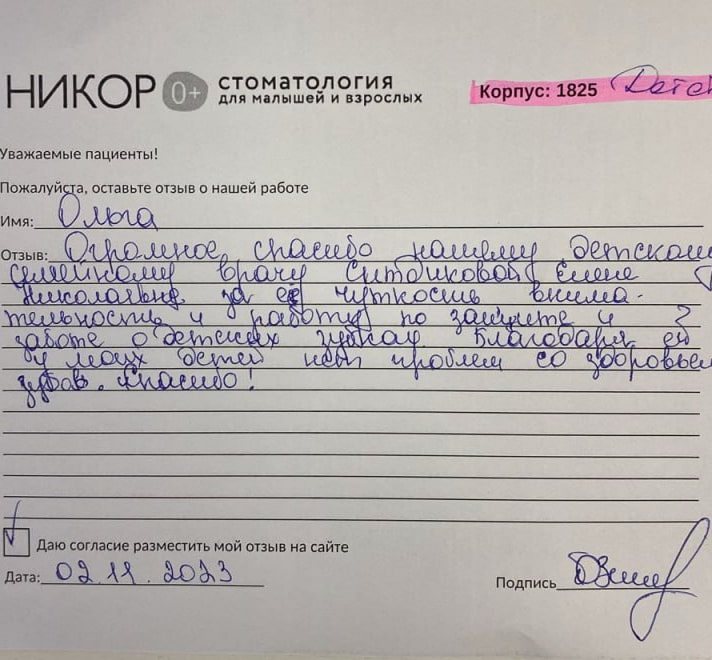 НИКОР 0+ СТОМАТОЛОГИЯ
ДЛЯ МАЛЫШЕЙ И ВЗРОСЛЫХ
Корпус: 1825
Уважаемые пациенты!
Пожалуйста, оставьте отзыв о нашей работе
Имя: Ольга
Отзыв: Огромное спасибо нашему детском
семейному врачу Ситдиковой Елене
Николаевне за её чуткость внима-
тельность и работу по защите и
заботе о детских зубках. Благодаря ей
у моих детей нет проблем со здоровьем
зубов. Спасибо!
Даю согласие разместить мой отзыв на сайте
Дата: 02.11.2023
Подпись